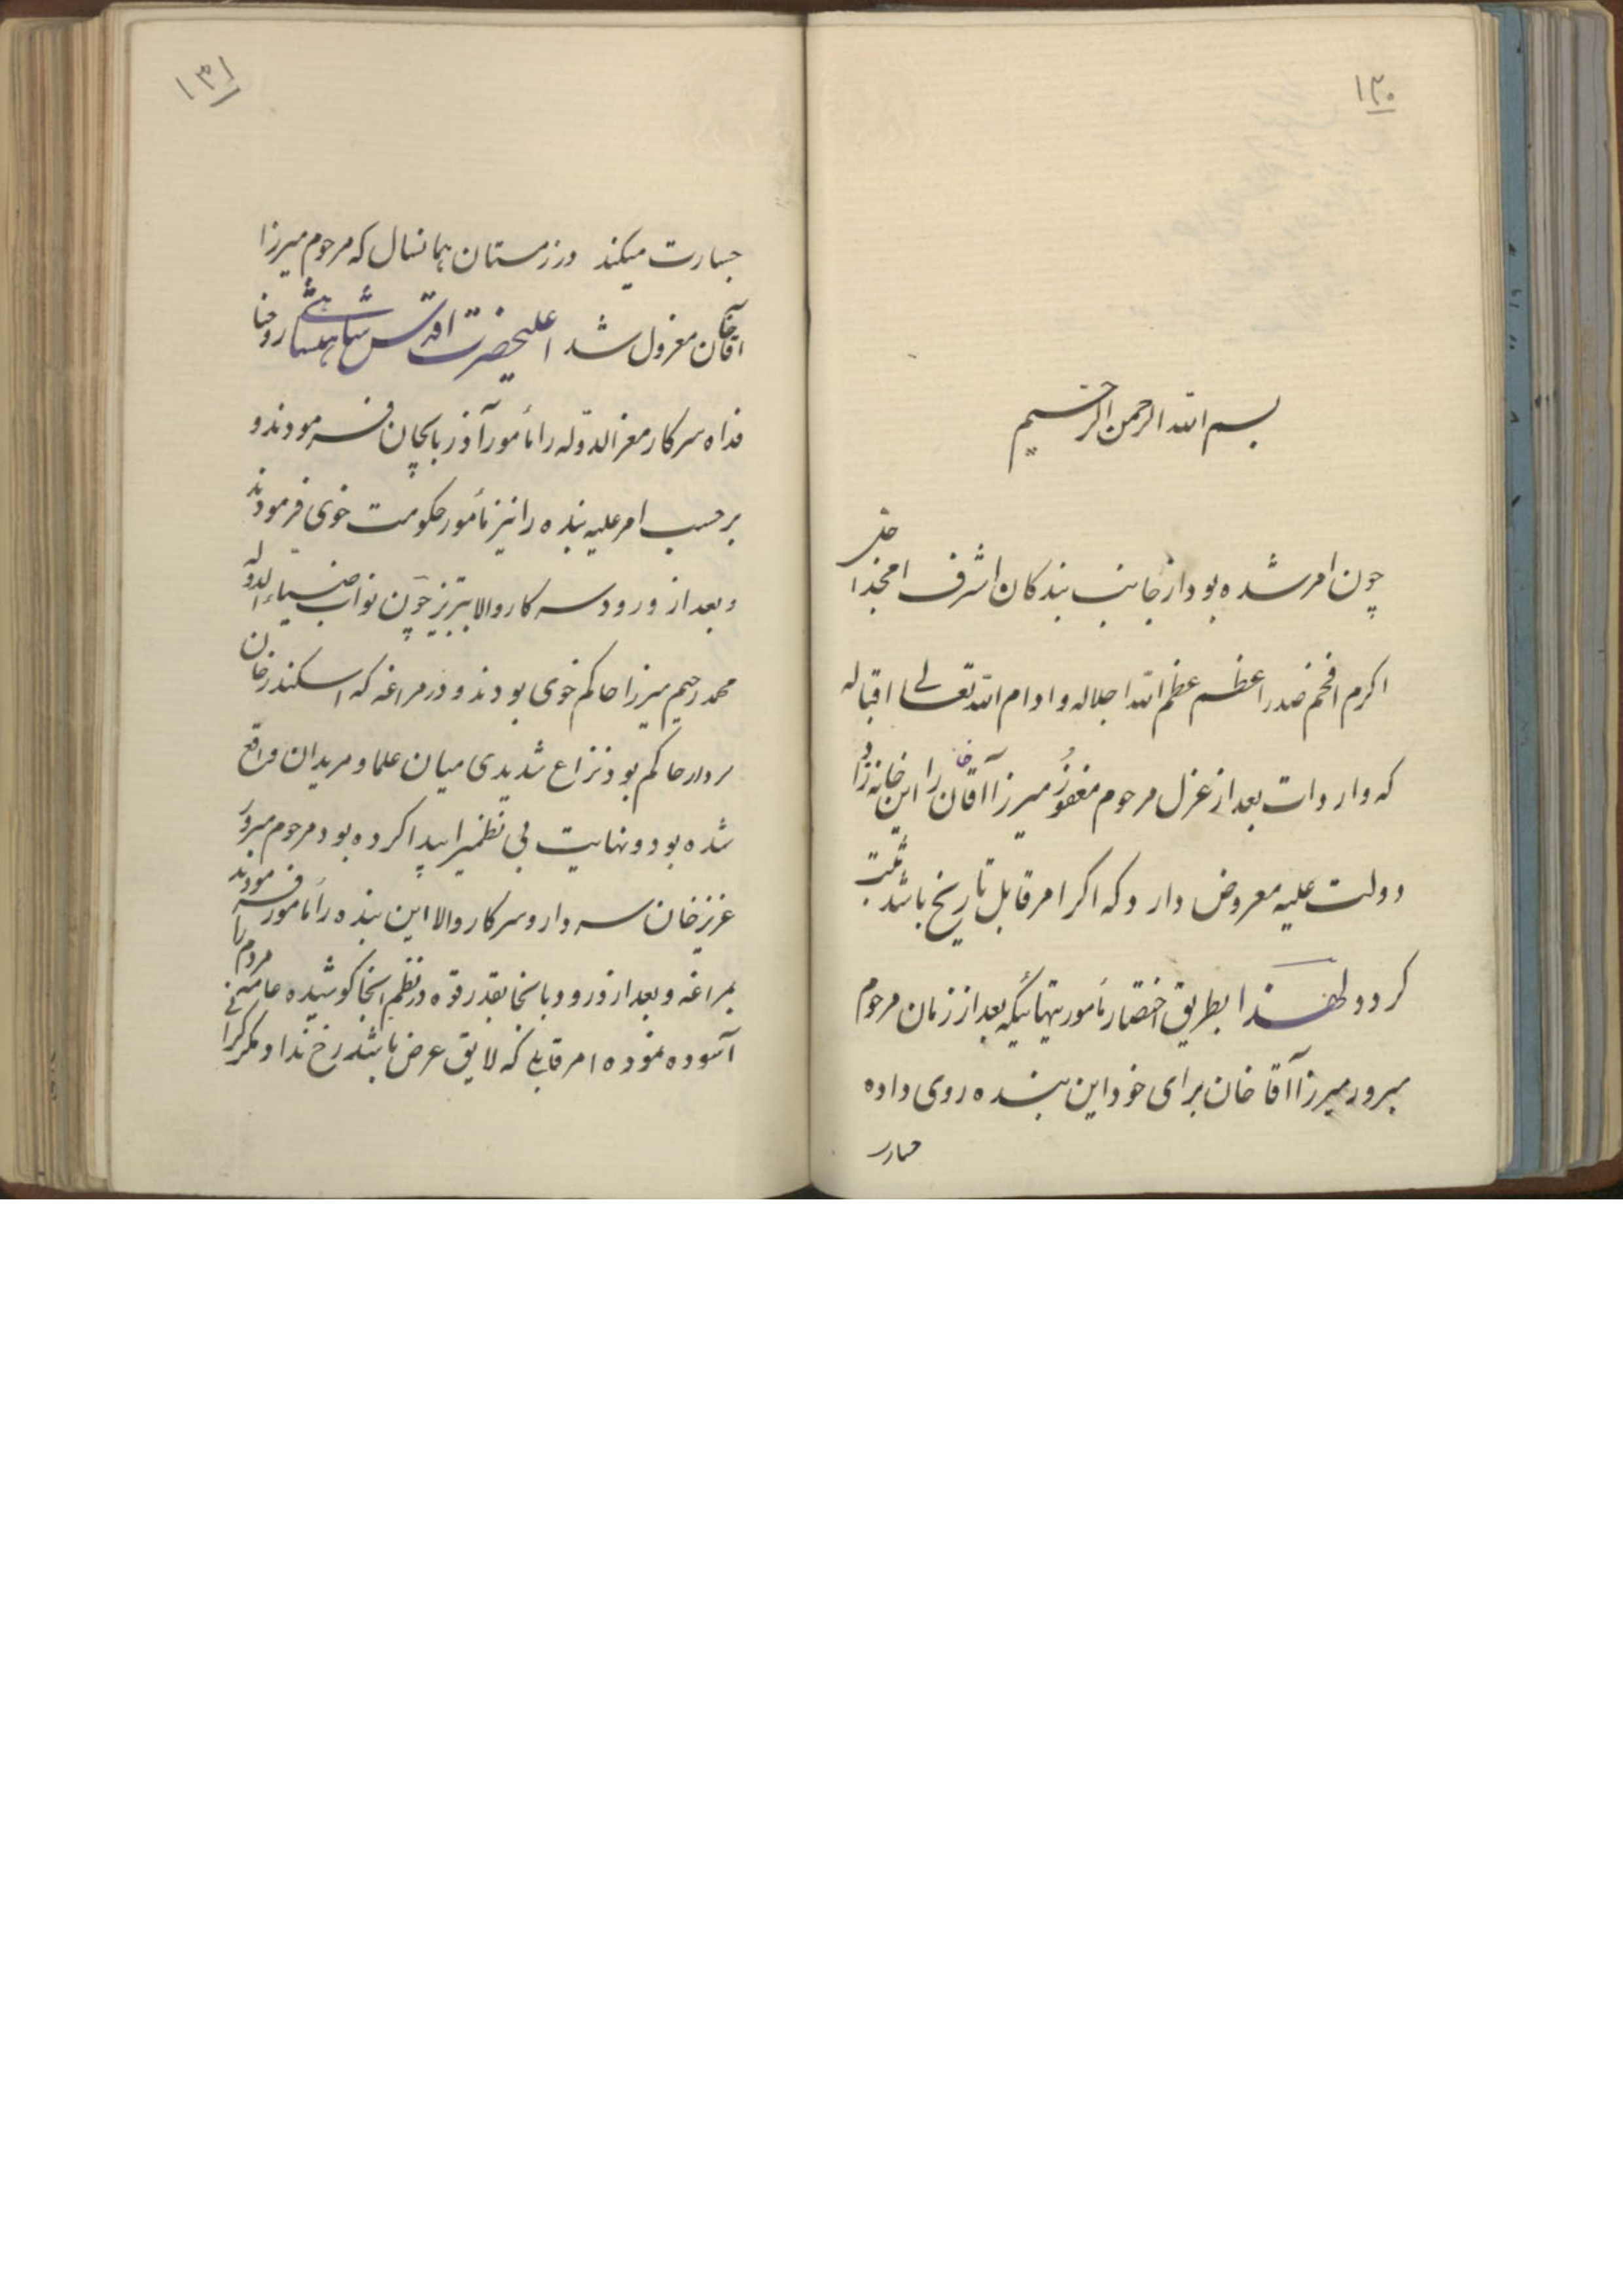 ۱۳۰
بسم الله الرحمن الرحیم
چون امر شده بود از جانب بندکان اشرف امجد ا
اکرم افخم صدر اعظم عظم الله اجلاله و ادام الله تعالی اقباله
که واردات بعد از عزل مرحوم مغفور میرزا آقاخان را این خانه زاد
دولت علیه معروض دارد که اکر امر قابل تاریخ باشد ثبت
کردد لهذا بطریق اختصار مأموریتهائیکه بعد از زمان مرحوم
مبرور میرزا آقا خان برای خود این بنده روی داده
جسارت
۱۳۱
جسارت میکند در زمستان همانسال که مرحوم میرزا
آقاخان معزول شد اعلیحضرت اقدس شاهنشاهی روحنا
فداه سرکار معزالدوله را مأمور آذربایجان فرمودند و
برحسب امر علیه بنده را نیز مأمور حکومت خوی فرمودند
و بعد از ورود سرکار والا بتبریز چون نواب ضیاءالدوله
محمد رحیم میرزا حاکم خوی بودند و در مراغه که اسکندر خان
سردار حاکم بود نزاع شدیدی میان علما و مریدان واقع
شده بود و نهایت بی نظمی را پیدا کرده بود مرحوم مبرور
عزیز خان سردار و سرکار والا این بنده را مأمور فرمودند
بمراغه و بعد از ورود بانجا بقدر قوه در نظم انجا کوشیده عامه مردم را
آسوده نموده امر قابلی که لایق عرض باشد رخ نداد مکر